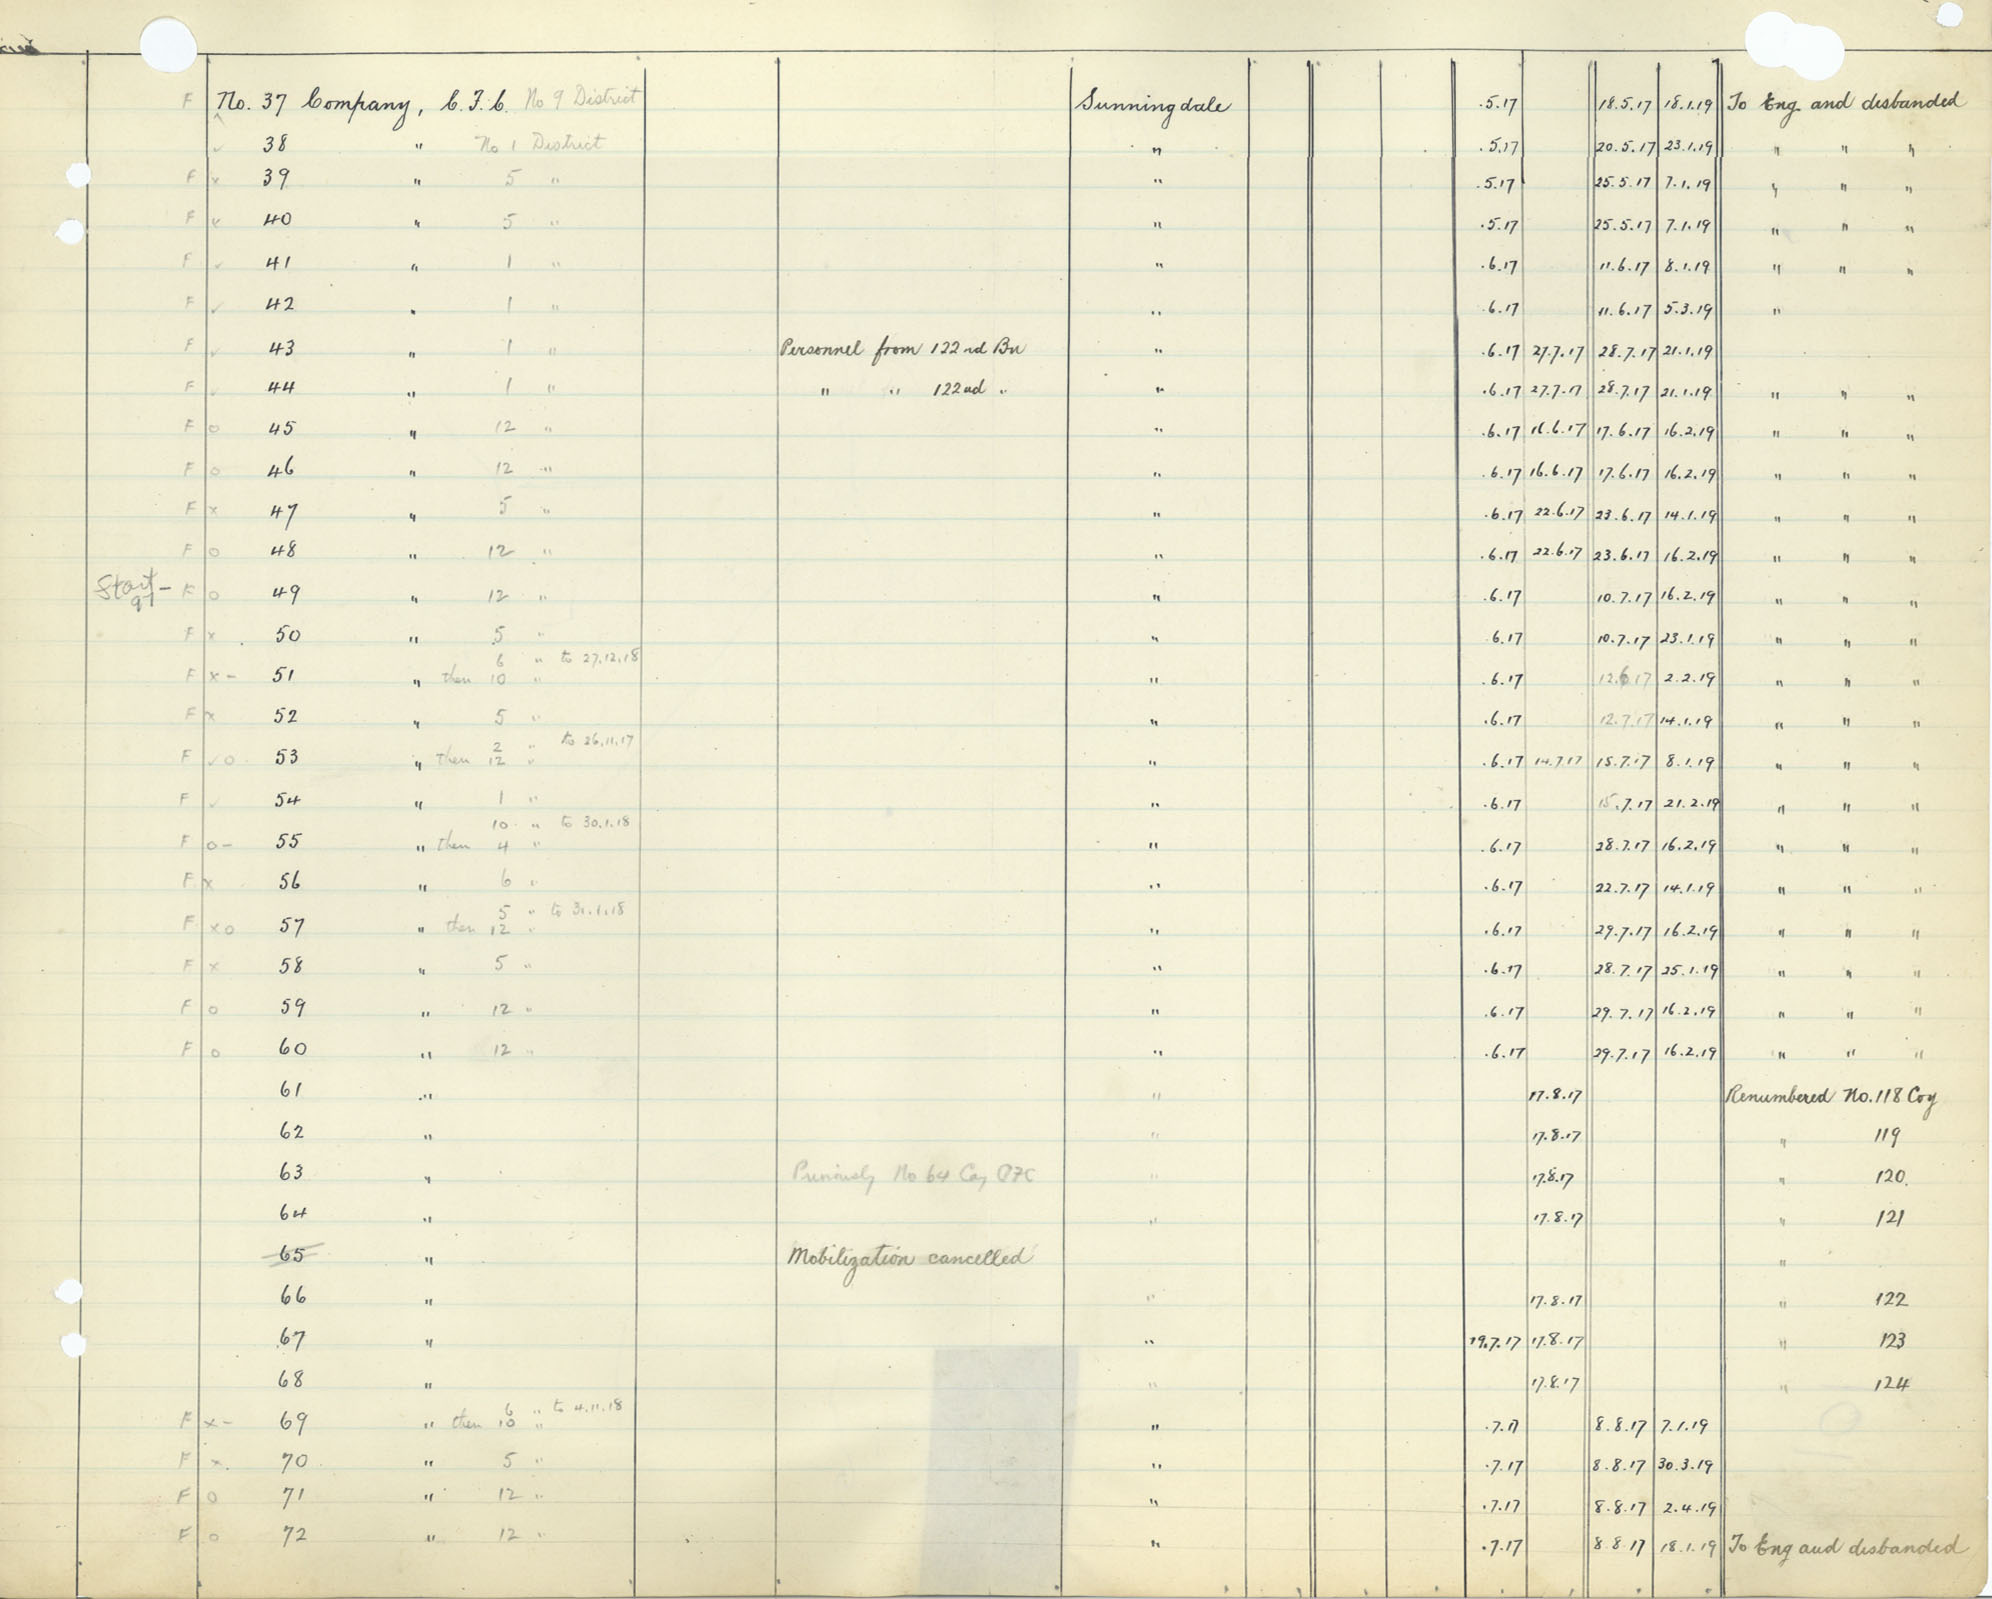 F No. 37 Company, C.F.C. No 9 District Sunningdale .5.17 18.5.17 18.1.19 To Eng. and disbanded
✓ 38 " No 1 District " .5.17 20.5.17 23.1.19 " " "
F x 39 " 5 " " .5.17 25.5.17 7.1.19 " " "
F x 40 " 5 " " .5.17 25.5.17 7.1.19 " " "
F ✓ 41 " 1 " " .6.17 11.6.17 8.1.19 " " "
F ✓ 42 " 1 " " .6.17 11.6.17 5.3.19 "
F ✓ 43 " 1 " Personnel from 122nd Bn " .6.17 27.7.17 28.7.17 21.1.19
F ✓ 44 " 1 " " " 122nd " " .6.17 27.7.17 28.7.17 21.1.19 " " "
F o 45 " 12 " " .6.17 16.6.17 17.6.17 16.2.19 " " "
F o 46 " 12 " " .6.17 16.6.17 17.6.17 16.2.19 " " "
F x 47 " 5 " " .6.17 22.6.17 23.6.17 14.1.19 " " "
F o 48 " 12 " " .6.17 22.6.17 23.6.17 16.2.19 " " "
Start – F o 49 " 12 " " .6.17 10.7.17 16.2.19 " " "
F x 50 " 5 " " .6.17 10.7.17 23.1.19 " " "
6 " to 27.12.18
F x – 51 " then 10 " " .6.17 12.6.17 2.2.19 " " "
F x 52 " 5 " " .6.17 12.7.17 14.1.19 " " "
2 " to 26.11.17
F ✓ o 53 " then 12 " " .6.17 14.7.17 15.7.17 8.1.19 " " "
F ✓ 54 " 1 " " .6.17 15.7.17 21.2.19 " " "
10 " to 30.1.18
F o – 55 " then 4 " " .6.17 28.7.17 16.2.19 " " "
F x 56 " 6 " " .6.17 22.7.17 14.1.19 " " "
5 " to 31.1.18
F x o 57 " then 12 " " .6.17 29.7.17 16.2.19 " " "
F x 58 " 5 " " .6.17 28.7.17 25.1.19 " " "
F o 59 " 12 " " .6.17 29.7.17 16.2.19 " " "
F o 60 " 12 " " .6.17 29.7.17 16.2.19 " " "
61 " " 17.8.17 Renumbered No. 118 Coy
62 " " 17.8.17 " 119
63 " Previously No 64 Coy CFC " 17.8.17 " 120.
64 " " 17.8.17 " 121
65 " Mobilization cancelled "
66 " " 17.8.17 " 122
67 " " 19.7.17 17.8.17 " 123
68 " " 17.8.17 " 124
6 " to 4.11.18
F x – 69 " then 10 " " .7.17 8.8.17 7.1.19
F x 70 " 5 " " .7.17 8.8.17 30.3.19
F o 71 " 12 " " .7.17 8.8.17 2.4.19
F o 72 " 12 " " .7.17 8.8.17 18.1.19 To Eng and disbanded